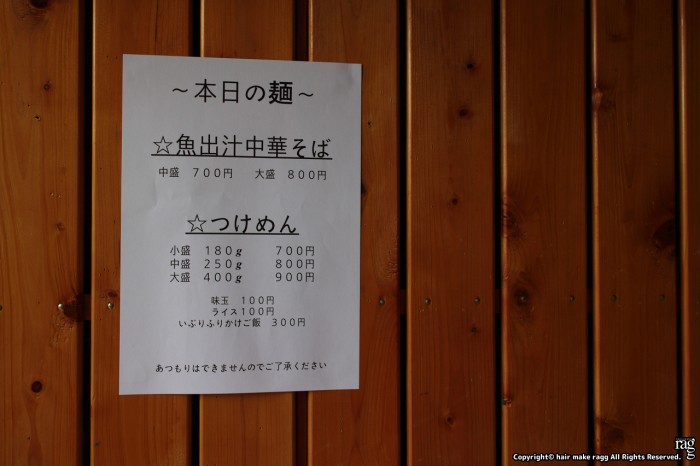 ～本日の麺～
☆魚出汁中華そば
中盛 ７００円 大盛 ８００円
☆つけめん
小盛 １８０g ７００円
中盛 ２５０g ８００円
大盛 ４００g ９００円
味玉 １００円
ライス１００円
いぶりふりかけご飯 ３００円
あつもりはできませんのでご了承ください
ragg
Copyright© hair make ragg All Rights Reserved.